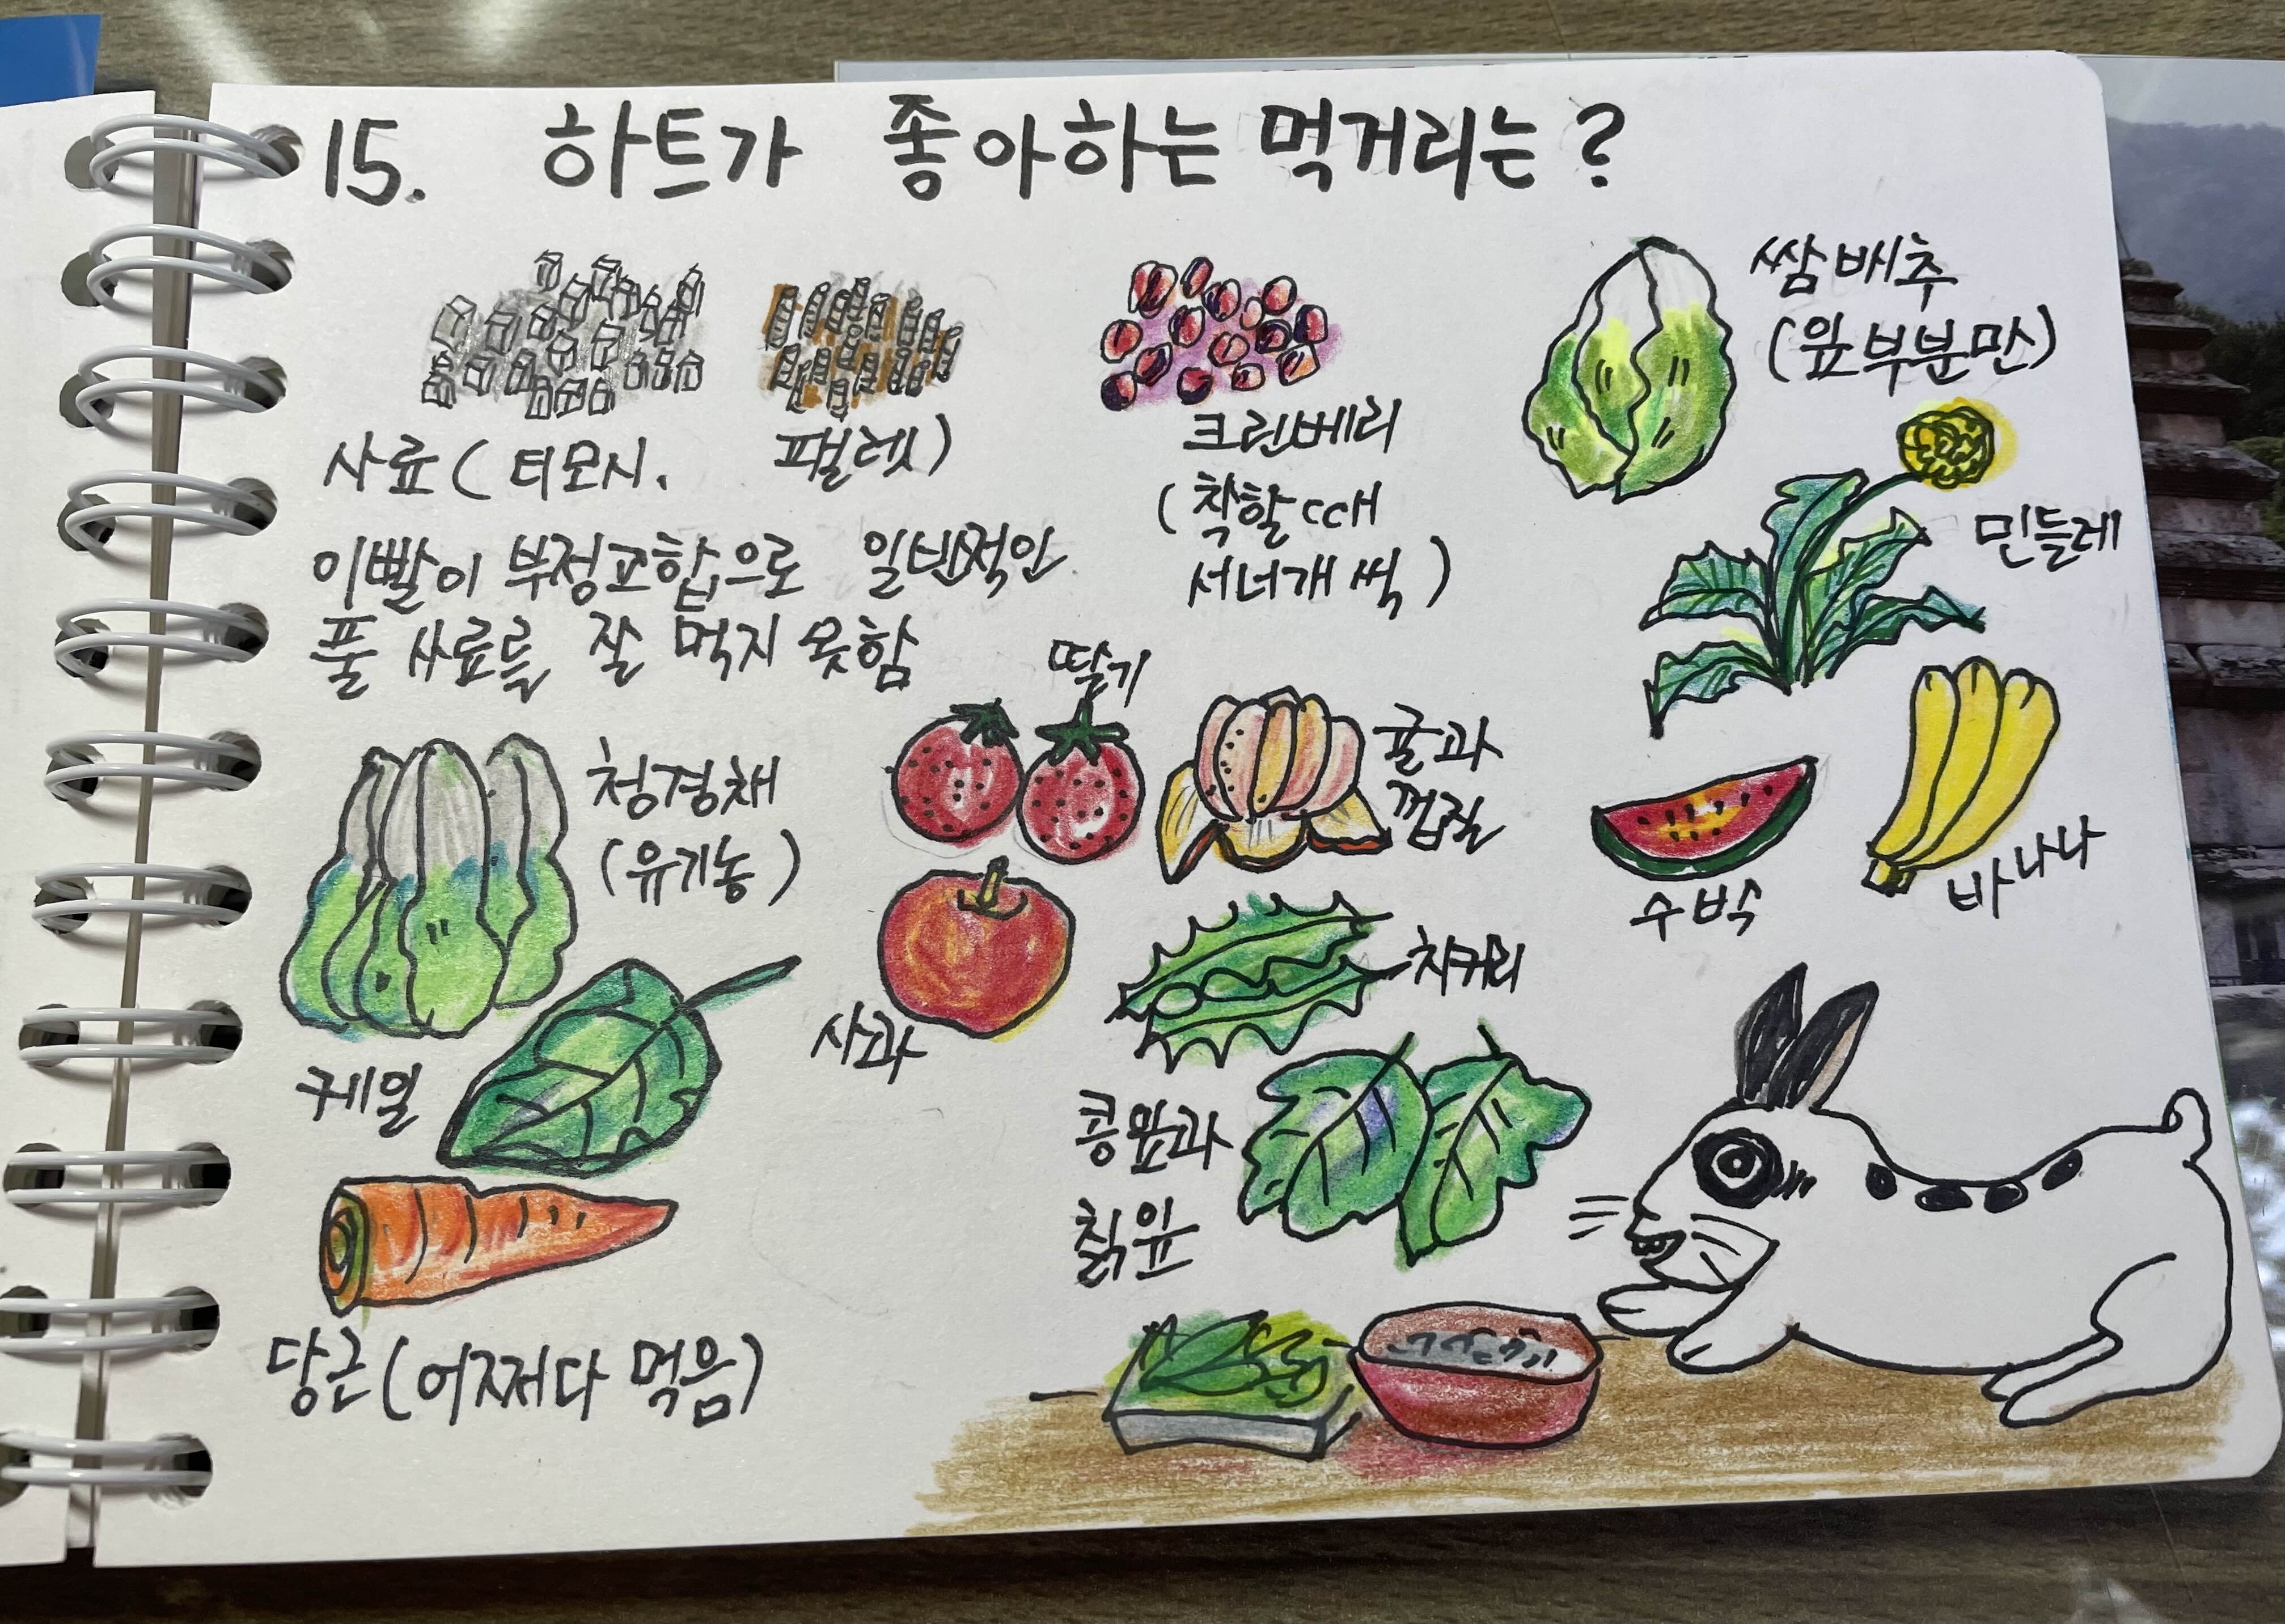 15. 하트가 좋아하는 먹거리는?
사료(티모시. 펠렛)
이빨이 부정교합으로 일반적인
풀 사료를 잘 먹지 못함
크린베리
(착할 때
서너개 씩)
쌈배추
(잎 부분만)
민들레
딸기
귤과
껍질
청경채
(유기농)
수박
바나나
사과
치커리
케일
콩잎과
칡잎
당근(어쩌다 먹음)